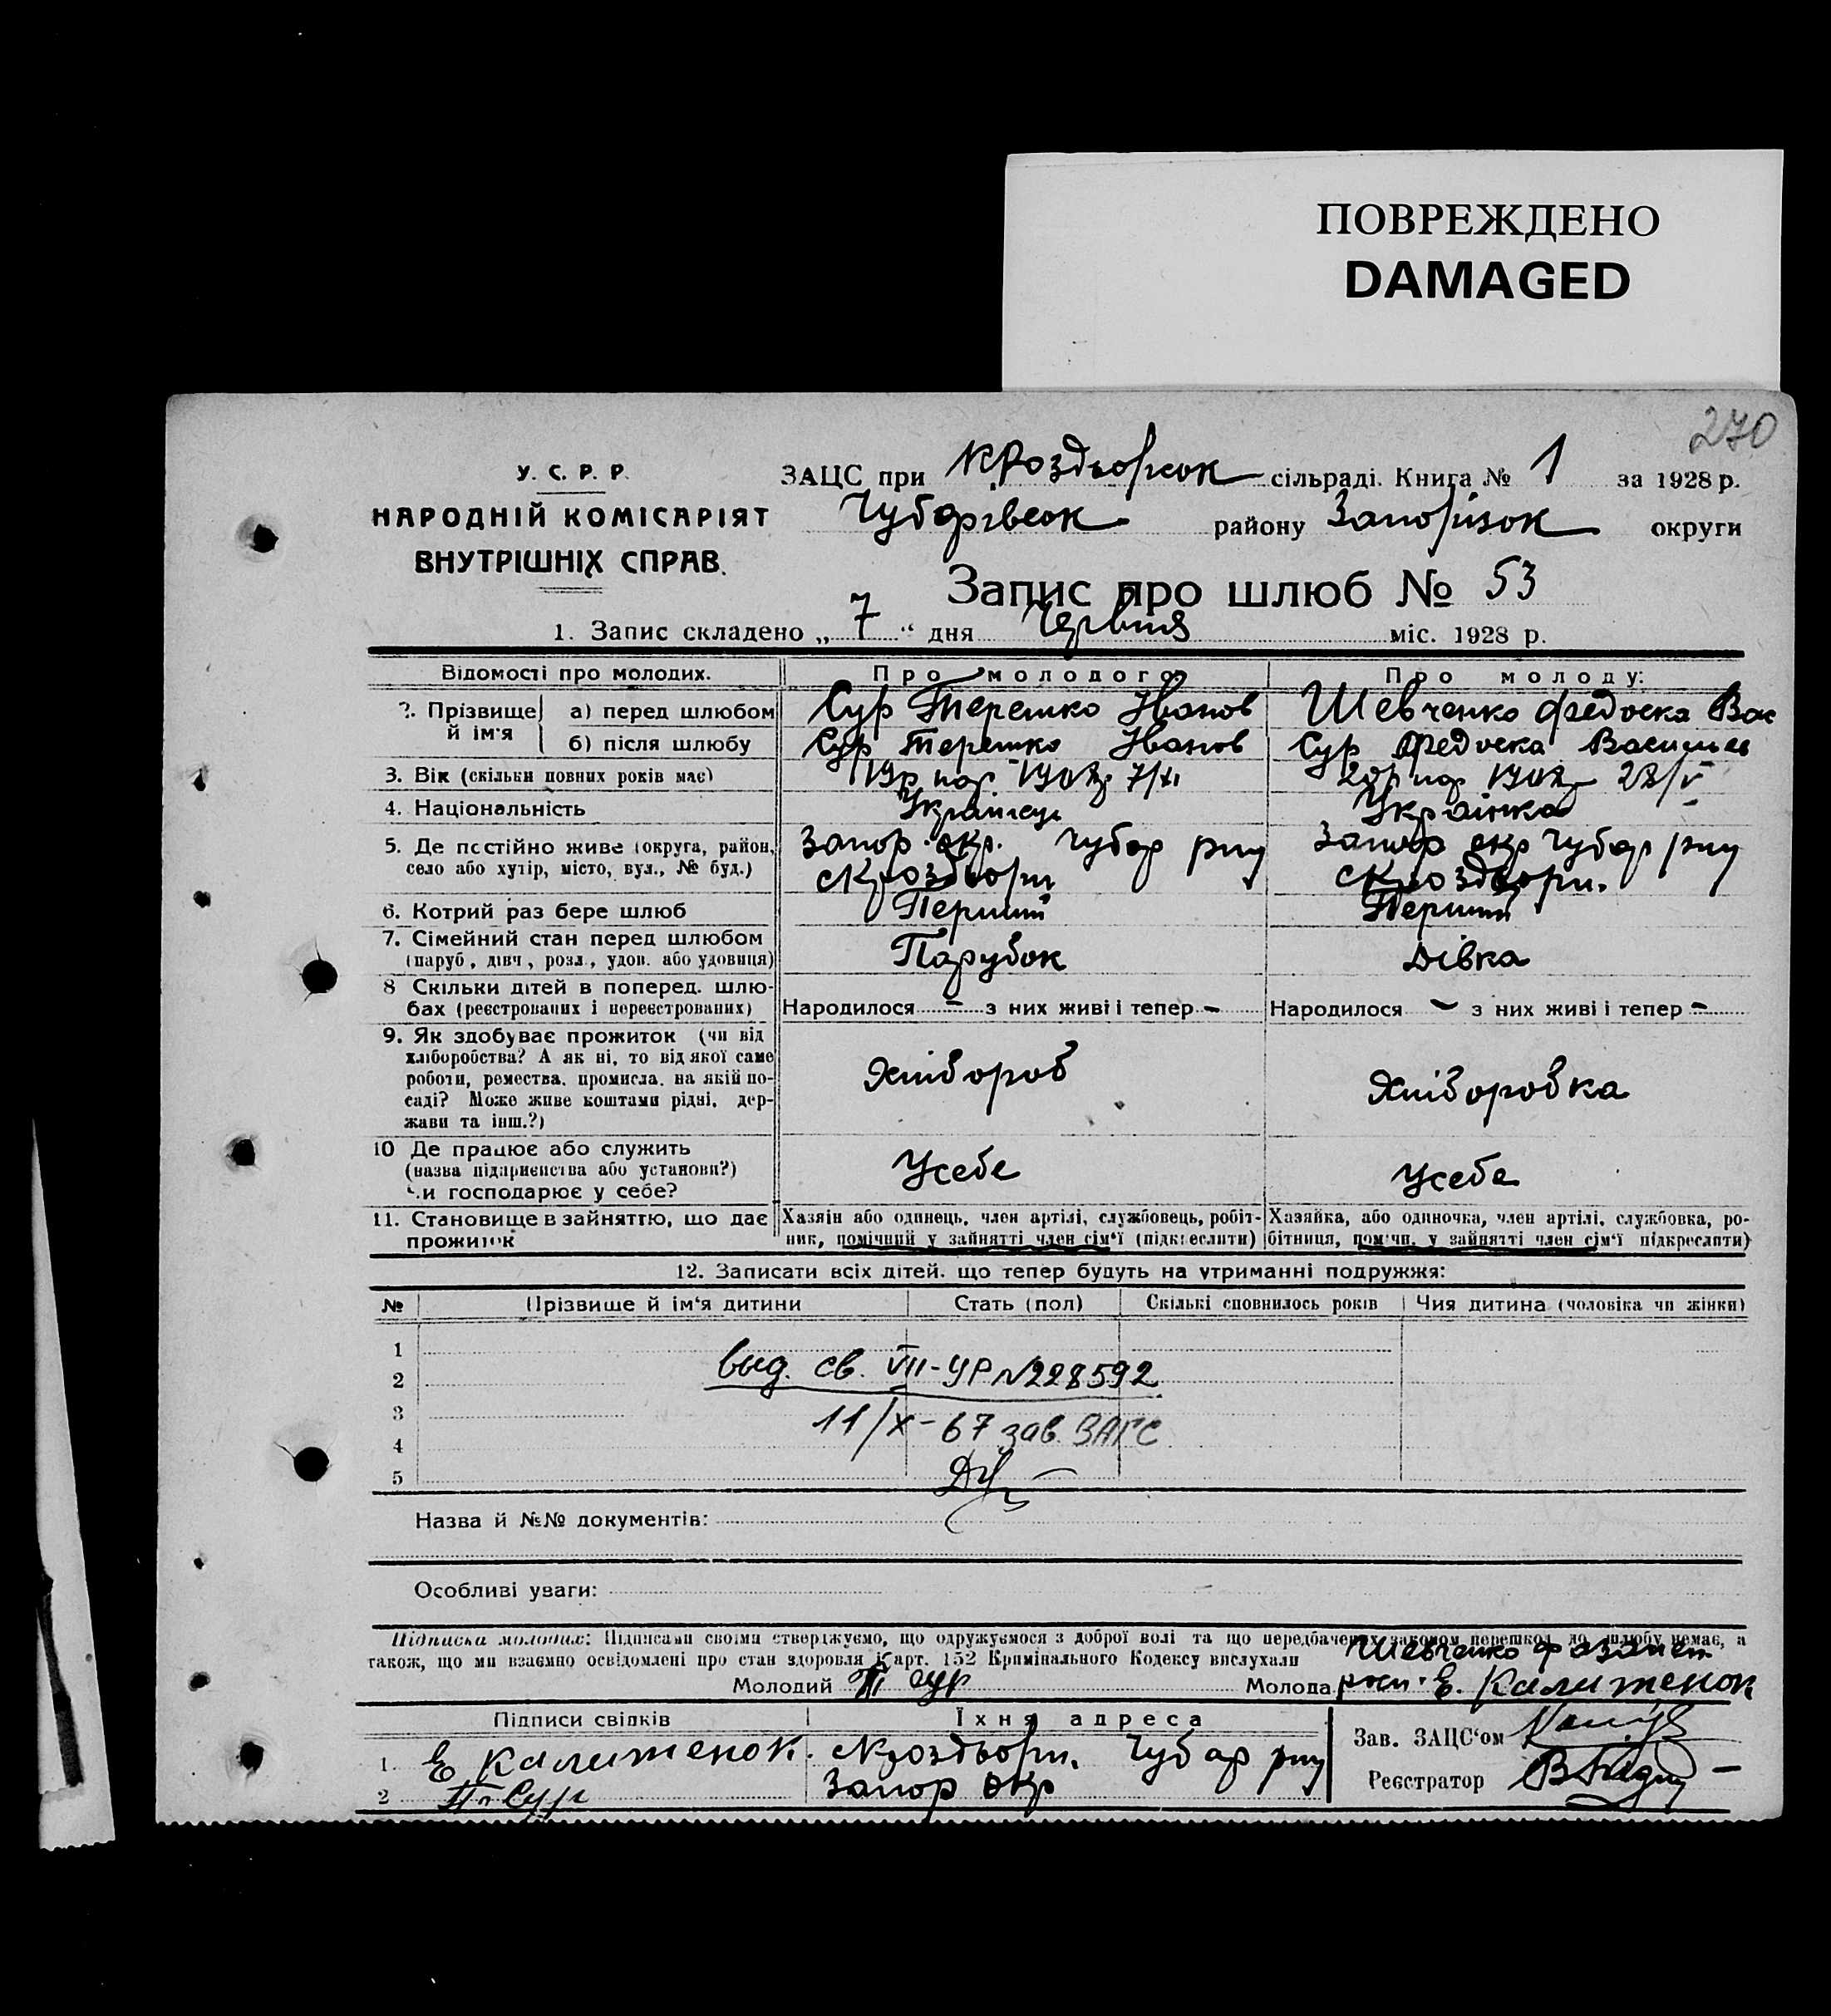 ПОВРЕЖДЕНО
DAMAGED
270
У. С. Р. Р.
НАРОДНІЙ КОМІСАРІЯТ
ВНУТРІШНІХ СПРАВ.
ЗАЦС при К.Роздорсок сільраді. Книга № 1 за 1928 р.
Чубарівсок району Запорізок округи
Запис про шлюб № 53
1. Запис складено „ 7 “ дня Червня міс. 1928 р.
Відомості про молодих. Про молодого: Про молоду:
2. Прізвище й ім'я
а) перед шлюбом Сур Терешко Іванов Шевченко Федоска Вас
б) після шлюбу Сур Терешко Іванов Сур Федоска Васильев
3. Вік (скільки повних років має) 19р нар. 1908р 7/XI 20р нар 1908р 28/V
4. Національність Українець Українка
5. Де постійно живе (округа, район, село або хутір, місто, вул., № буд.) Запор. окр. Чубар рну Запор окр Чубар рну
6. Котрий раз бере шлюб Перший Перший
7. Сімейний стан перед шлюбом (паруб, дівч, розл., удов. або удовиця) Парубок Дівка
8 Скільки дітей в поперед. шлюбах (реєстрованих і нереєстрованих) Народилося – з них живі і тепер – Народилося – з них живі і тепер –
9. Як здобуває прожиток (чи від хліборобства? А як ні, то від якої саме роботи, ремества, промисла, на якій посаді? Може живе коштами рідні, держави та інш.?) Хлібороб Хліборобка
10 Де працює або служить (назва підприємства або установи?) Чи господарює у себе? Усебе Усебе
11. Становище в зайняттю, що дає прожиток
Хазяін або одинець, член артілі, службовець, робітник, помічний у зайнятті член сім'ї (підкреслити)
Хазяйка, або одиночка, член артілі, службовка, робітниця, помічн. у зайнятті член сім'ї підкреслити)
12. Записати всіх дітей, що тепер будуть на утриманні подружжя:
№ Прізвище й ім'я дитини Стать (пол) Скількі сповнилось років Чия дитина (чоловіка чи жінки)
1
2 выд. св. VII-УР №228592
3 11/X-67 зав. ЗАГС
4
5
Назва й №№ документів:
Особливі уваги:
Підписка молодих: Підписами своїми стверджуємо, що одружуємося з доброї волі та що передбачених законом перешкод до шлюбу немає, а
також, що ми взаємно освідомлені про стан здоровля й арт. 152 Кримінального Кодексу вислухали
Шевченко
Молодий Т Сур Молода Е. Калитенок
Підписи свідків Їхня адреса
1. Е Калитенок. Чубар рну
2 Сур Запор окр
Зав. ЗАЦС'ом
Реєстратор